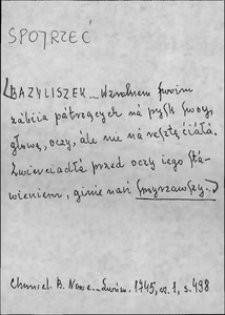 SPOJRZEĆ
(BAZYLISZEK – Wzrokiem swoim
zabiia pátrzących ná pysk swoy,
głowę, oczy, ále nie ná resztę ciáłá.
Zwierciadłá przed oczy iego stá-
wieniem, ginie nań spoyrzawszy.–)
Chmiel. B. Nowe – Lwów. 1745, cz. 1, s. 498